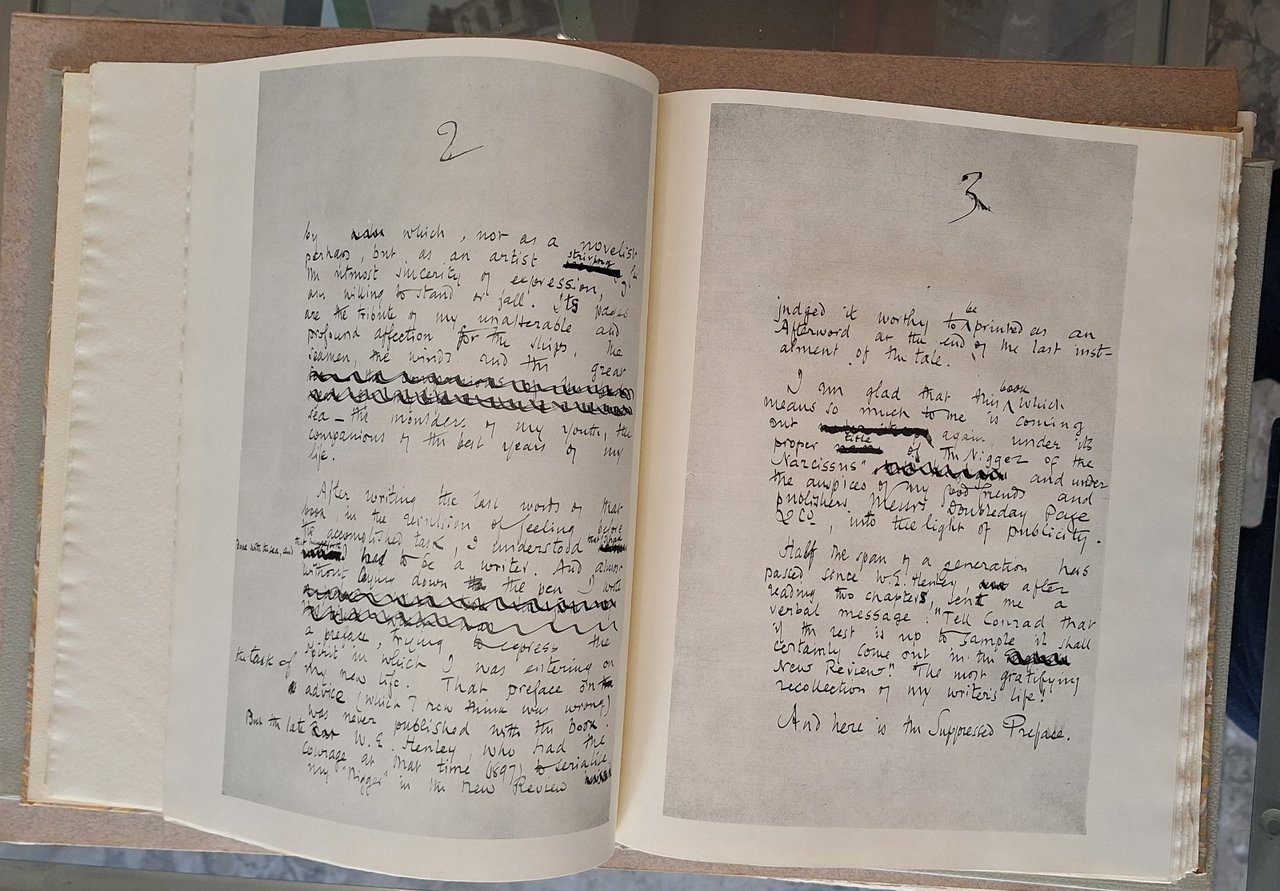 2
by which, not as a novelist
perhaps, but as an artist striving for
the utmost sincerity of expression, I
am willing to stand or fall. Its pages
are the tribute of my unalterable and
profound affection for the ships, the
seamen, the winds and the great
sea – the moulders of my youth, the
companions of the best years of my
life.
After writing the last words of that
book, in the revulsion of feeling before
the accomplished task, I understood that I had
done with the sea, and that henceforth I had to be a writer. And almost
without laying down the pen I wrote
a preface, trying to express the
spirit in which I was entering on
the task of my new life. That preface on
advice (which I now think was wrong)
was never published with the book.
But the late W.E. Henley, who had the
courage at that time (1897) to serialize
my "Nigger" in the New Review
3
judged it worthy to be printed as an
Afterword at the end of the last inst-
alment of the tale.
I am glad that this book which
means so much to me is coming
out again, under its
proper title of "The Nigger of the
Narcissus" and under
the auspices of my good friends and
publishers Messrs Doubleday Page
& Co, into the light of publicity.
Half the span of a generation has
passed since W.E. Henley, after
reading two chapters, sent me a
verbal message: "Tell Conrad that
if the rest is up to sample it shall
certainly come out in the
New Review." The most gratifying
recollection of my writer's life!
And here is the Suppressed Preface.